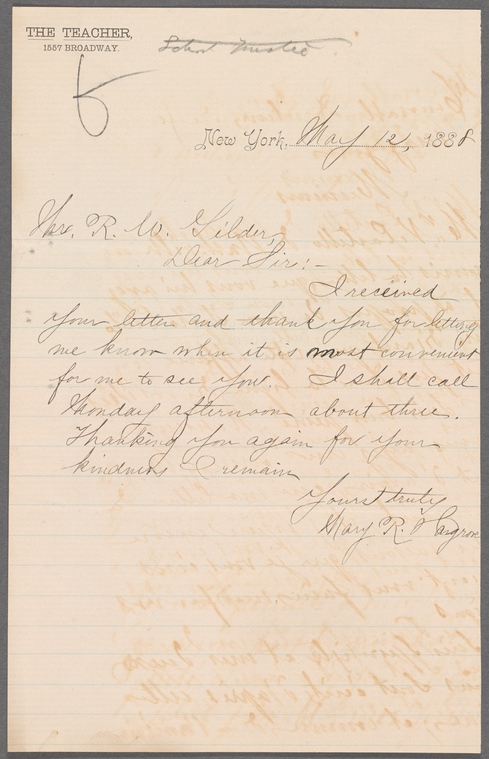 THE TEACHER,
1557 BROADWAY.
School Trustee.
6
New York, May 12, 1888
Hon. R. W. Gilder,
Dear Sir:-
I received
your letter and thank you for letting
me know when it is most convenient
for me to see you. I shall call
Monday afternoon about three.
Thanking you again for your
kindness I remain
Yours truly
Mary R. Hargrove